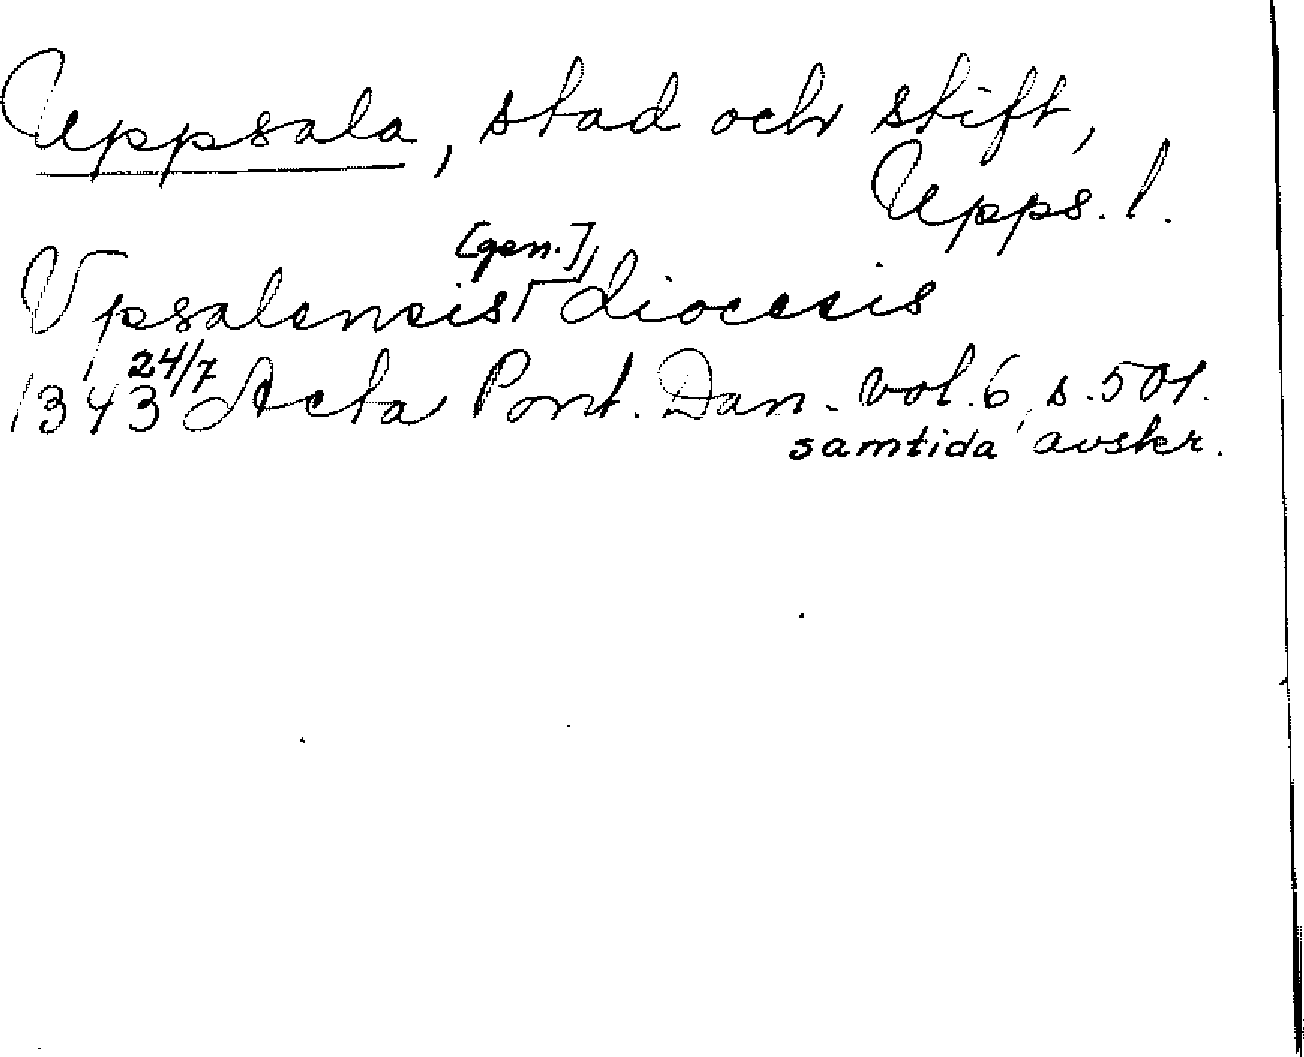 Uppsala, stad och stift,
Upps. l.
[gen.]
Vpsalensis diocesis
1343 24/7 Acta Pont. Dan. vol. 6, s. 501.
samtida avskr.